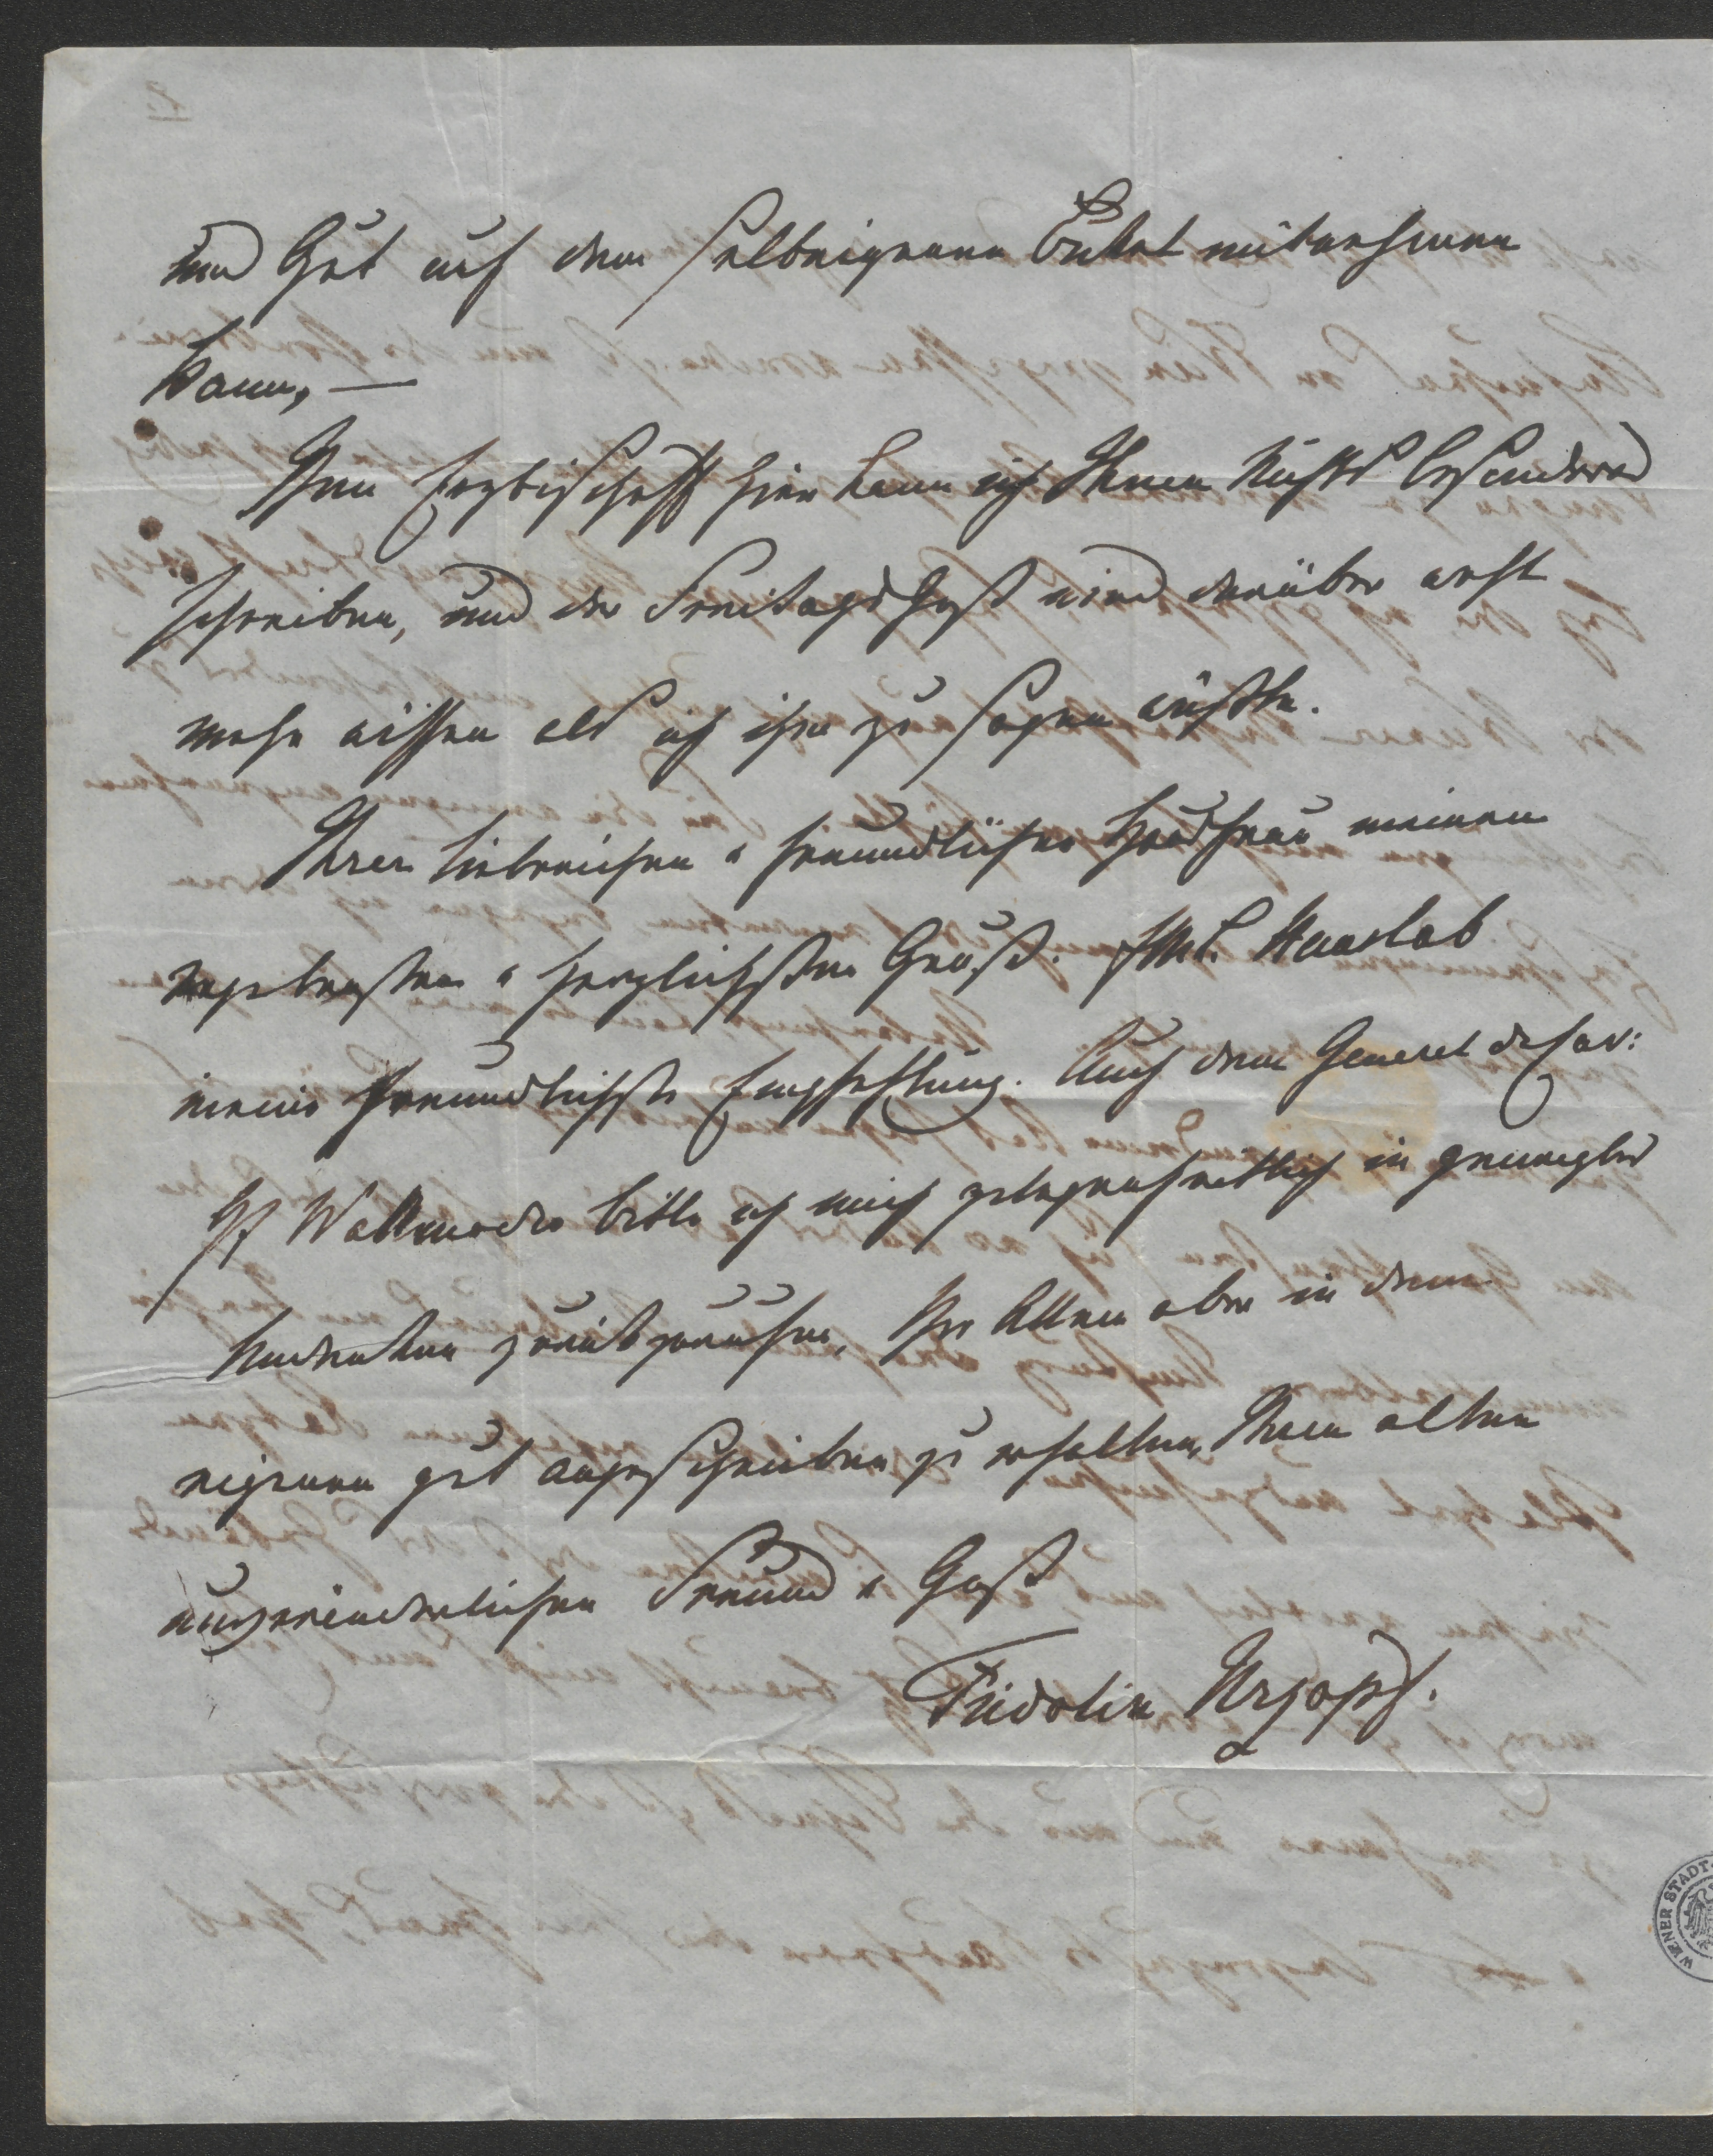 und Gut auf dem selbeigenen Buckel mitnehmen
kann, —
Vom Erzbischoff hier kann ich Ihnen Nichts besonderes
schreiben, und der Freitags Gast wird darüber erst
mehr wissen als ich ihm zu sagen wüßte.
Ihrer liebreichen & freundlichen Hausfrau meinen
ergebensten & herzlichsten Gruß. FML Hauslab
meine freundlichste Empfehlung. Auch dem General der Cav:
Gf Wallmoden bitte ich mich gelegenheitlich in geneigtes
Andenken zurückzurufen, Vor Allem aber in dem
eigenen gut angeschrieben zu erhalten, Ihren alten
unveränderlichen Freund & Gast
Fridolin
WIENER STADT-